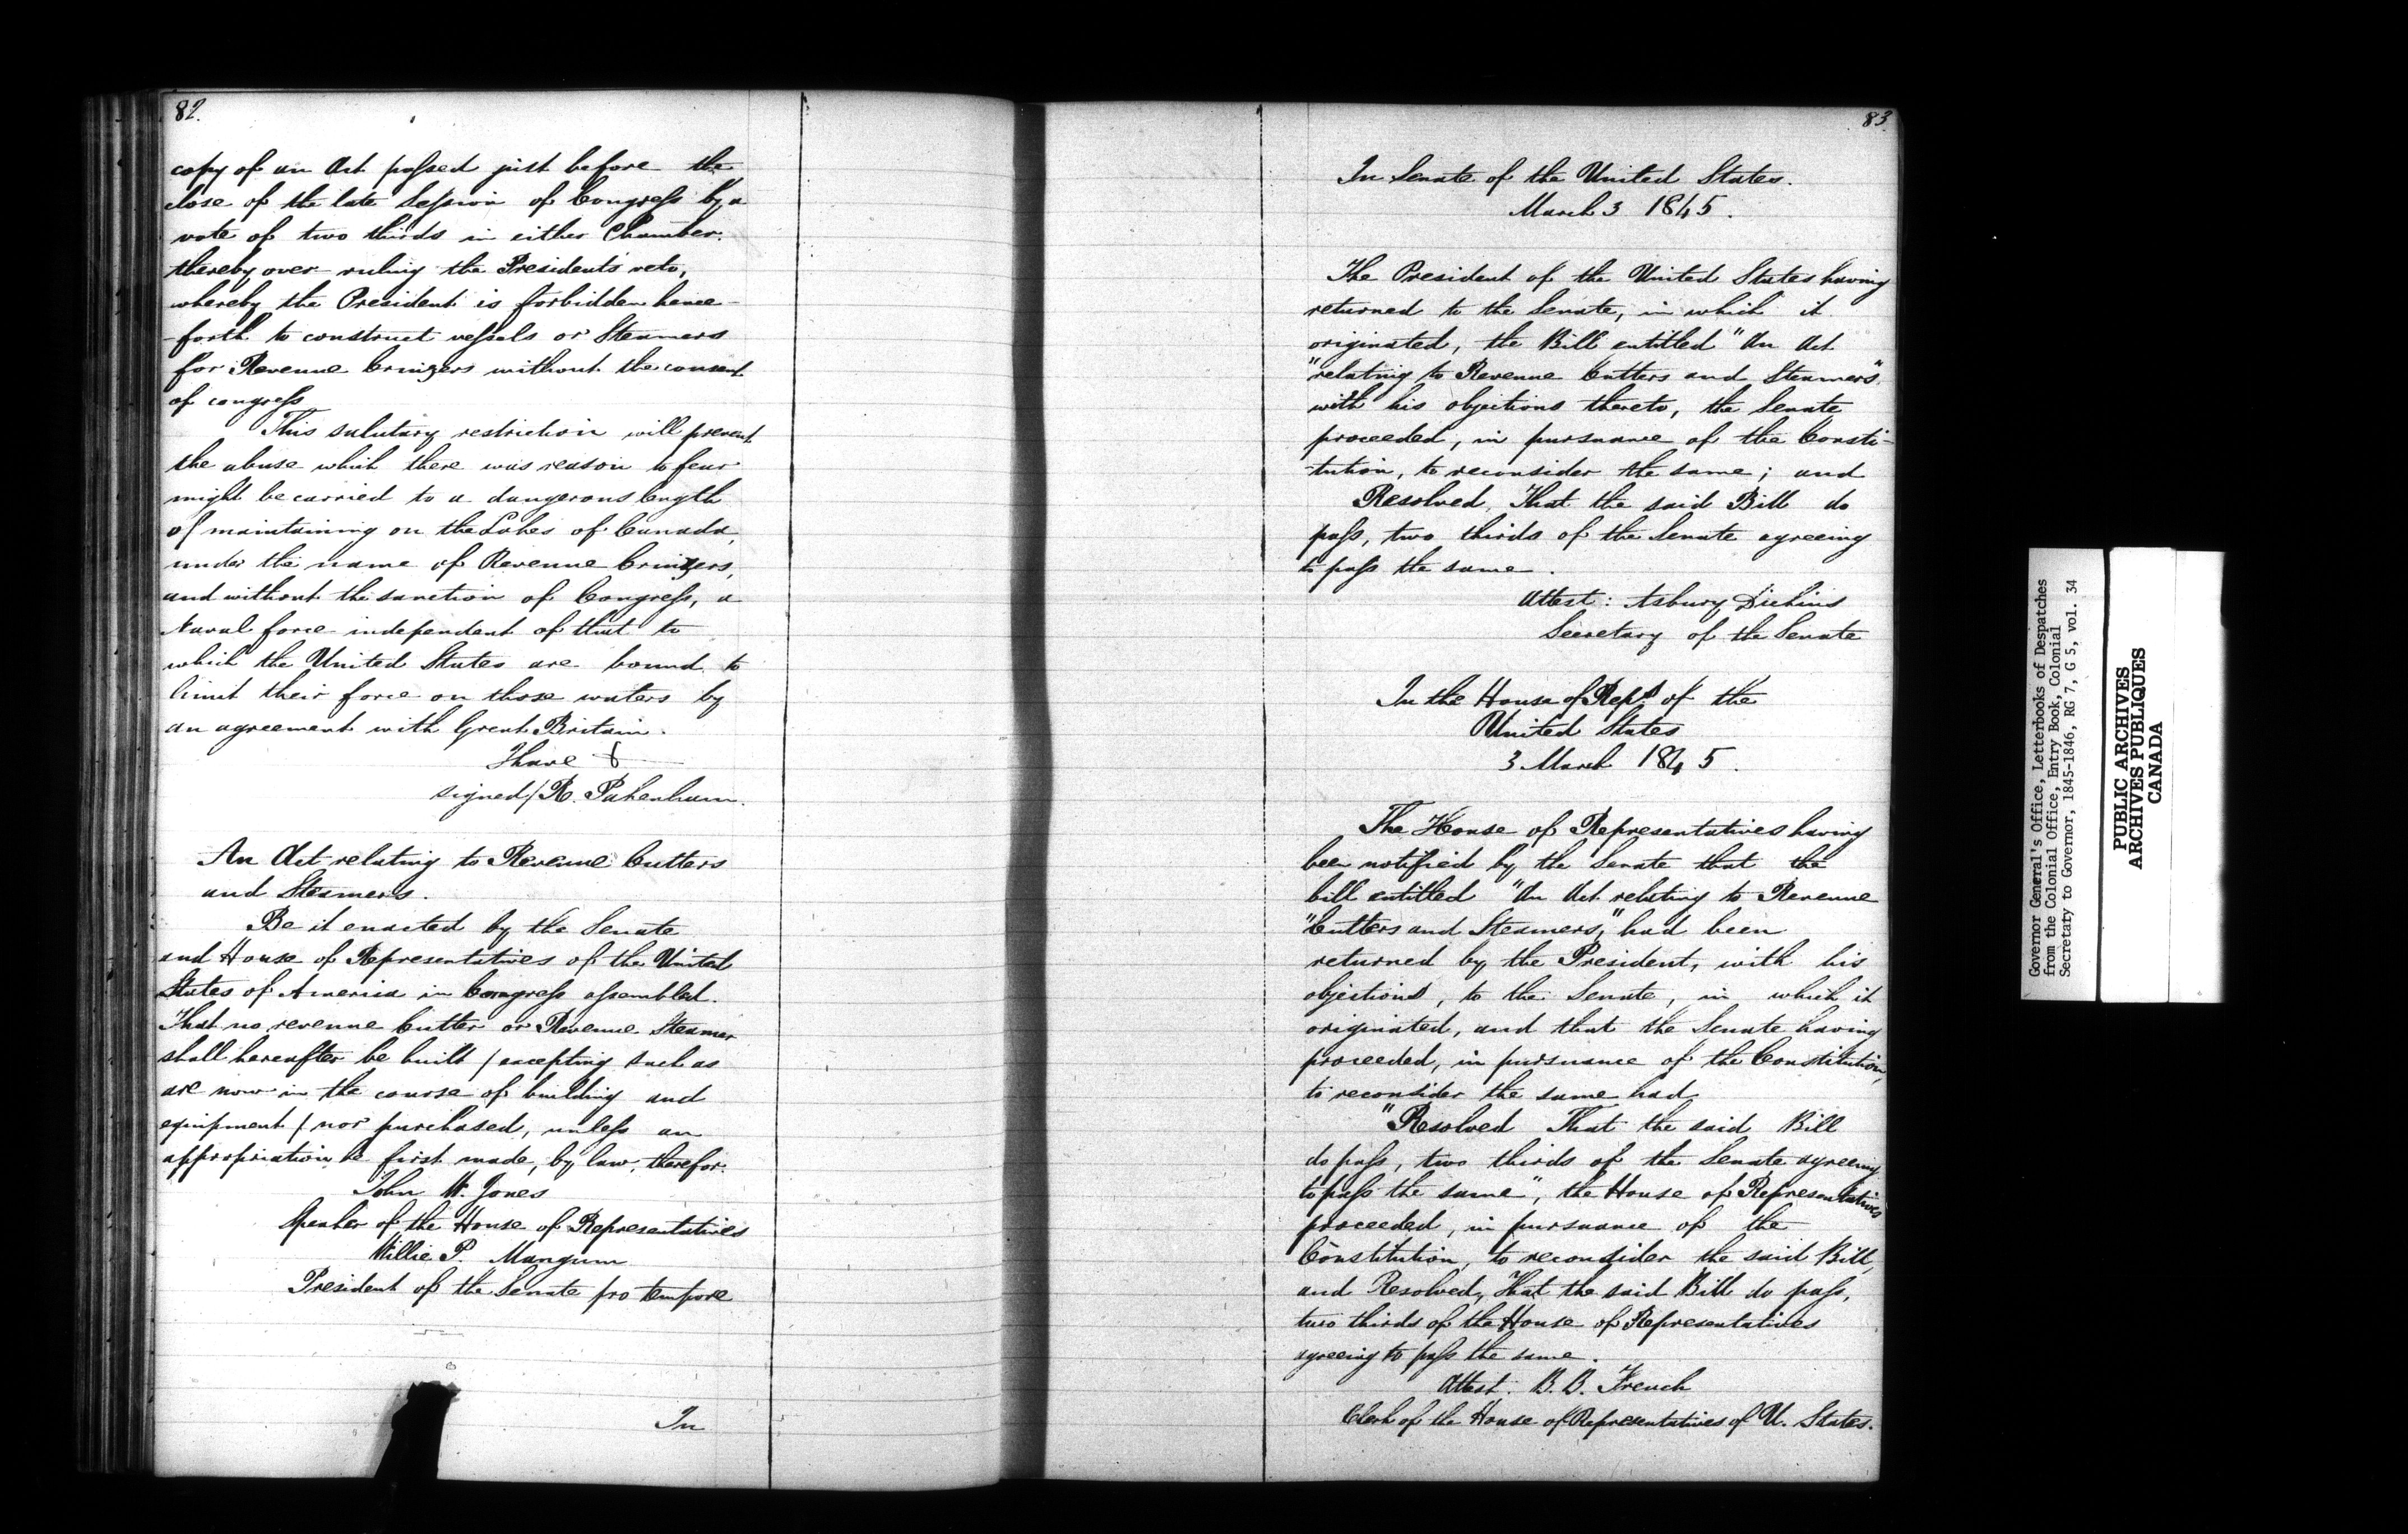 82.
copy of an Act passed just before the
close of the late Session of Congress by a
vote of two thirds in either Chamber.
thereby over-ruling the President's veto,
whereby the President is forbidden hence-
-forth to construct vessels or Steamers
for Revenue Cruizers without the consent
of congress
This salutary restriction will prevent
the abuse which there was reason to fear
might be carried to a dangerous length
of maintaining on the Lakes of Canada,
under the name of Revenue Cruizers,
and without the sanction of Congress, a
Naval force independent of that to
which the United States are bound to
limit their force on those waters by
an agreement with Great Britain.
I have &
signed/ R. Pakenham.
An Act relating to Revenue Cutters
and Steamers.
Be it enacted by the Senate
and House of Representatives of the United
States of America in Congress assembled.
That no revenue Cutter or Revenue Steamer
shall hereafter be built / excepting such as
are now in the course of building and
equipment / nor purchased, unless an
appropriation be first made, by law, therefor.
John W. Jones
Speaker of the House of Representatives
Willie P. Mangum
President of the Senate pro tempore
In
83.
In Senate of the United States.
March 3 1845.
The President of the United States having
returned to the Senate, in which it
originated, the Bill entitled "An Act
"relating to Revenue Cutters and Steamers"
with his objections thereto, the Senate
proceeded, in pursuance of the Consti-
-tution, to reconsider the same; and
Resolved, That the said Bill do
pass, two thirds of the Senate agreeing
to pass the same.
Attest: Asbury Dickins
Secretary of the Senate
In the House of Reps. of the
United States
3 March 1845.
The House of Representatives having
been notified by the Senate that the
bill entitled "An Act relating to Revenue
"Cutters and Steamers," had been
returned by the President, with his
objections, to the Senate, in which it
originated, and that the Senate having
proceeded, in pursuance of the Constitution,
to reconsider the same had
"Resolved That the said Bill
do pass, two thirds of the Senate agreeing
to pass the same", the House of Representatives
proceeded, in pursuance of the
Constitution, to reconsider the said Bill,
and Resolved, That the said Bill do pass,
two thirds of the House of Representatives
agreeing to pass the same.
Attest. B. B. French
Clerk of the House of Representatives of U. States.
Governor General's Office, Letterbooks of Despatches
from the Colonial Office, Entry Book, Colonial
Secretary to Governor, 1845-1846, RG 7, G 5, vol. 34
PUBLIC ARCHIVES
ARCHIVES PUBLIQUES
CANADA